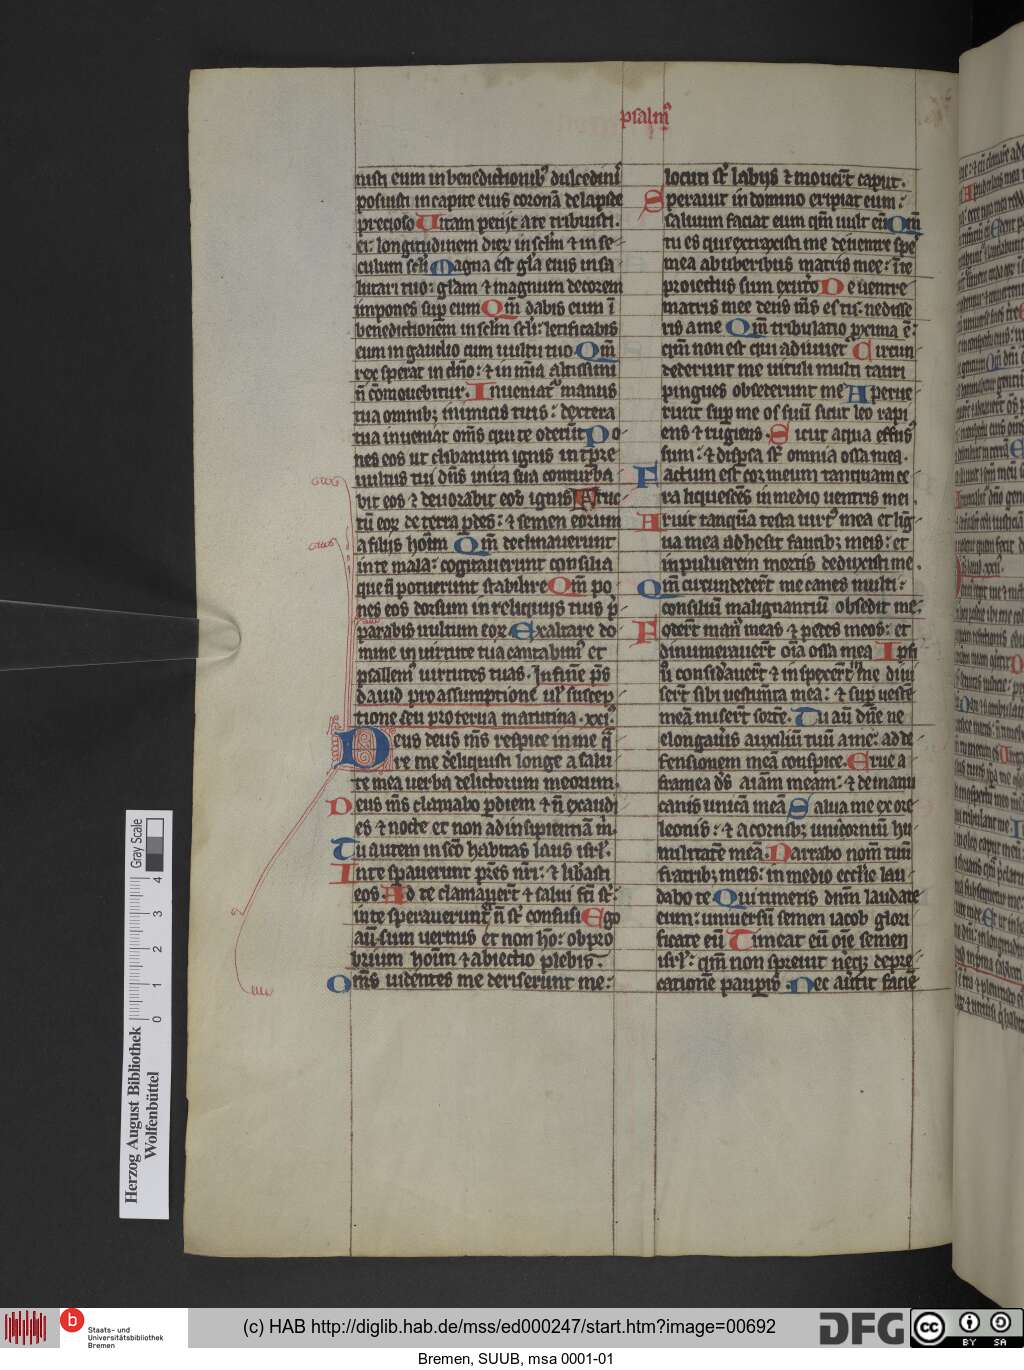 psalm̄
uisti eum in benedictionib᷒ dulcedinis
posuisti in capite eius coronā de lapide
precioso Vitam petijt a te tribuisti
ei: longitudinem dieꝝ in sc̄lm ⁊ in se
culum sc̄li Magna est gl̄a eius in sa
lutari tuo: gl̄am ⁊ magnum decorem
impones sup̱ eum Qm̄ dabis eum ī
benedictionem in sc̄lm sc̄li: letificabis
eum in gaudio cum uultu tuo Qm̄
rex sperat in dn̄o: ⁊ in mīa altissimi
n̄ cōmouebitur. Inueniat᷑ manus
tua omnibꝫ inimicis tuis: dextera
tua inueniat om̄s qui te oderūt Po
nes eos ut clibanum ignis in tp̄re
uultus tui dn̄s in ira sua conturba
bit eos ⁊ deuorabit eos ignis Fruc
tū eoꝝ de terra ꝑdes: ⁊ semen eorum
a filijs hoīm Qm̄ declinauerunt
in te mala: cogitauerunt consilia
que n̄ potuerunt stabilire Qm̄ po
nes eos dorsum in reliquijs tuis p̄
parabis uultum eoꝝ Exaltare do
mine in uirtute tua cantabim᷒ et
psallem᷒ uirtutes tuas. In finē ps̄
dauid pro assumptione ul̓ suscep
tione seu pro cerua matutina .xxi.
Deus deus m̄s respice in me q̄
re me d̓eliquisti longe a salu
te mea uerba delictorum meorum.
Deus m̄s clamabo ꝑ diem ⁊ n̄ exaud
es ⁊ nocte et non ad insipientiā m̄.
Tu autem in sc̄o habitas laus isrl̓.
In te sp̱auerunt pr̄es nr̄i: ⁊ lib̓asti
eos Ad te clamauer̄t ⁊ salui fc̄i st̄:
in te sperauerunt ⁊ n̄ st̄ confusi Ego
aū sum uermis et non hō: obpro
brium hoīm ⁊ abiectio plebis.
Om̄s uidentes me deriserunt me:
locuti st̄ labijs ⁊ mouer̄t caput.
Sperauit in domino eripiat eum:
saluum faciat eum qm̄ uult eū Qm̄
tu es qui extraxisti me de uentre spes
mea ab uberibus matris mee: ī te
proiectus sum ex utero De uentre
matris mee deus m̄s es tu: ne disces
ris a me Qm̄ tribulatio ꝓxima ē:
qm̄ non est qui adiuuet Circun
dederunt me uituli multi tauri
pingues obsederunt me Aperue
runt sup̱ me os suū sicut leo rapi
ens ⁊ rugiens. Sicut aqua effus᷒
sum: ⁊ disp̱sa st̄ omnia ossa mea.
Factum est cor meum tanquam ce
ra liquescēs in medio uentris mei.
Aruit tanquā testa uirt᷒ mea et lig̓
ua mea adhesit faucibꝫ meis: et
in puluerem mortis deduxisti me.
Qm̄ circundeder̄t me canes multi:
consiliū malignantiū obsedit me:
Foder̄t man᷒ meas ⁊ pedes meos: et
dinumerauer̄t oīa ossa mea Ipsi
ū consid̓auer̄t ⁊ inspexer̄t me diui
ser̄t sibi uestim̄ta mea: ⁊ sup̱ uestē
meā miser̄t sortē. Tu aū dn̄e ne
elongau̓is auxiliū tuū a me: ad de
fensionem meā conspice. Erue a
framea d̄s aīam meam: ⁊ de manu
canis unicā meā Salua me ex ore
leonis: ⁊ a cornibꝫ unicorniū hu
militatē meā. Narrabo nom̄ tuū
fratribꝫ meis: in medio eccl̓ie lau
dabo te Qui timetis dn̄m laudate
eum: uniuersū semen iacob glori
ficate eū Timeat eū oīe semen
isrl̓: qm̄ non spreuit neqꝫ depre
cationē paup̱is. Nec au̓tit faciē
Gray Scale
0 1 2 3 4
Herzog August Bibliothek
Wolfenbüttel
b
Staats- und
Universitätsbibliothek
Bremen
(c) HAB http://diglib.hab.de/mss/ed000247/start.htm?image=00692
DFG
cc
BY SA
Bremen, SUUB, msa 0001-01